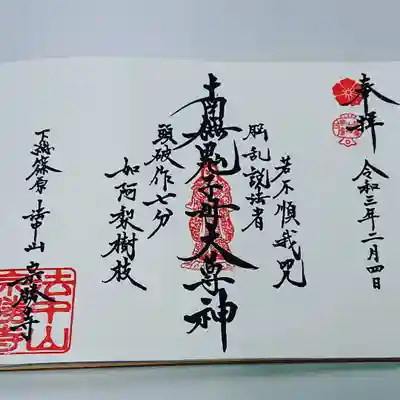 奉拝 令和三年二月四日
若不順我呪
悩乱説法者
南無鬼子母大尊神
頭破作七分
如阿梨樹枝
下総篠原 法中山 勝寺
法中山
勝寺